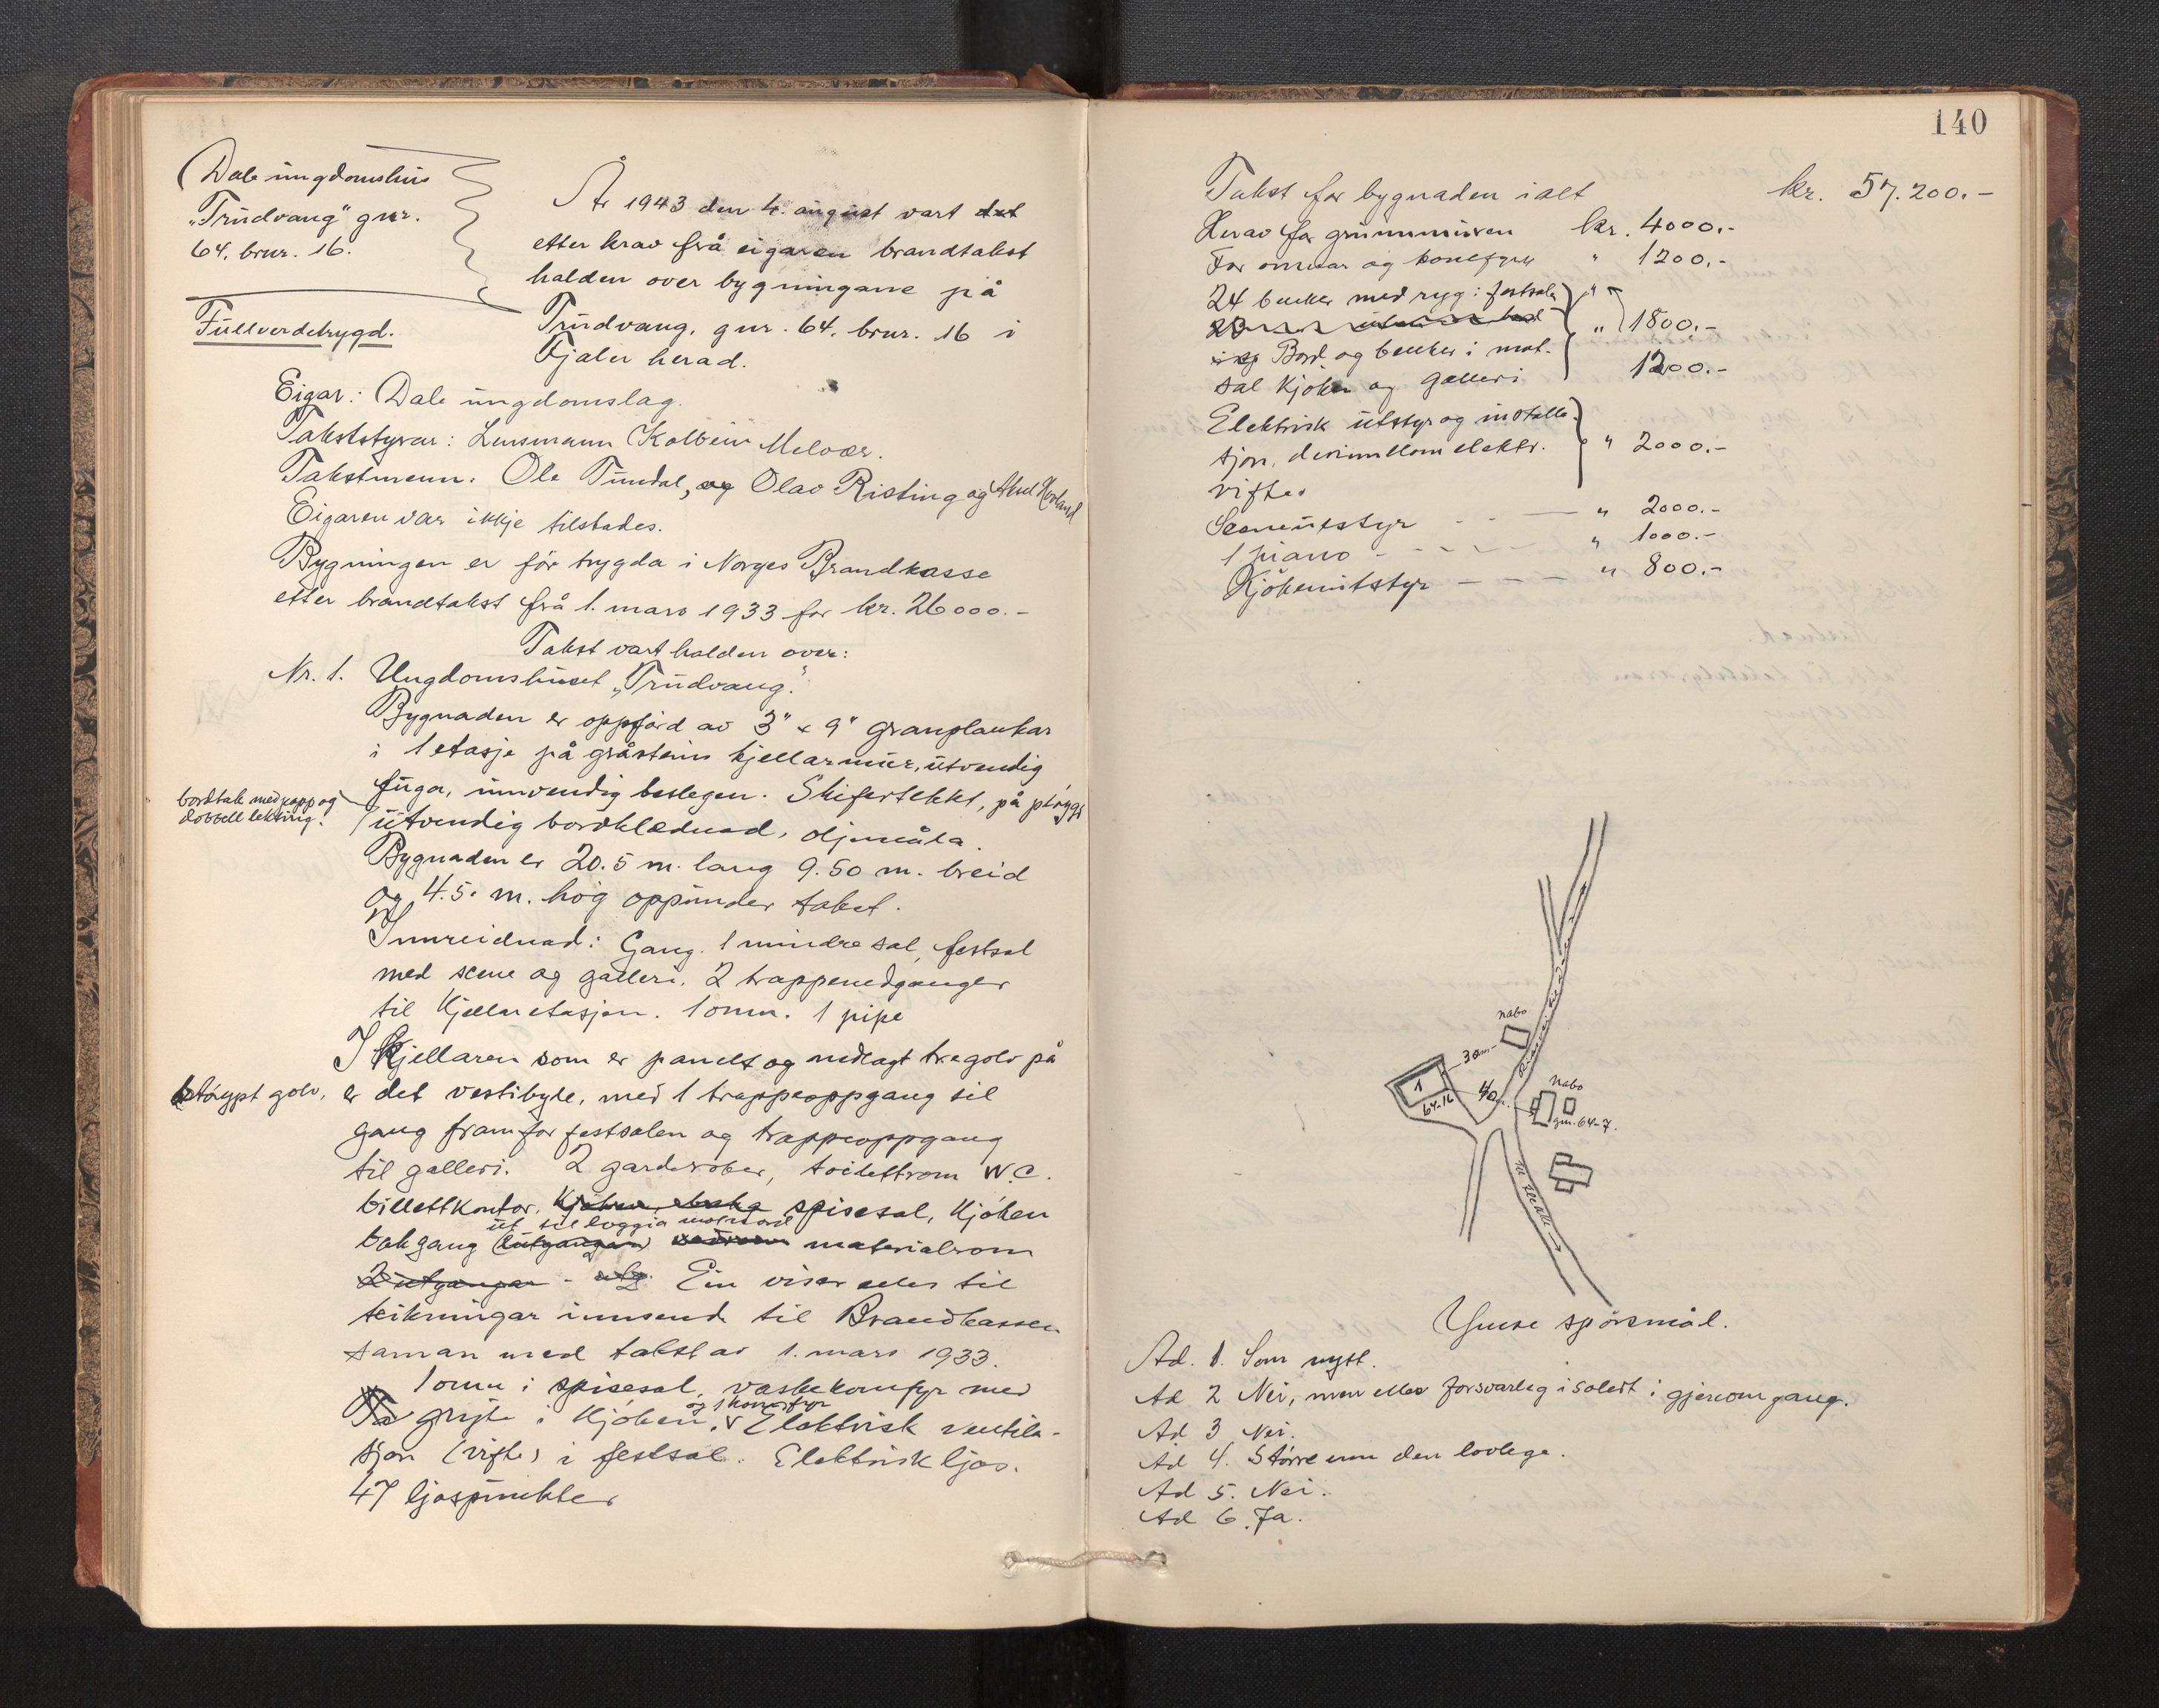 Dale ungdomshus
"Trudvang" gnr.
64. brnr. 16.
Fullverdetrygd.
År 1943 den 4. august vart det
etter krav frå eigaren brandtakst
halden over bygningane på
Trudvang, gnr. 64. brnr. 16 i
Fjaler herad.
Eigar: Dale ungdomslag.
Takststyrar: Lensmann Kolbein Melvær.
Takstmenn: Ole Tundal, og Olav Risting og
Eigaren var ikkje tilstades.
Bygningen er før trygda i Norges Brandkasse
etter brandtakst frå 1. mars 1933 for kr. 26000.-
Takst vart halden over:
Nr. 1. Ungdomshuset "Trudvang."
Bygnaden er oppførd av 3" x 9" granplankar
i 1 etasje på gråsteins kjellarmur, utvendig
fuga, innvendig beslegen. Skifertekkt, på
bordtak med papp og
dobbell lekting.
utvendig bordklædnad, oljemåla.
Bygnaden er 20.5 m. lang 9.50 m. breid
og 4.5. m. høg oppunder taket.
Innreidnad: Gang. 1 mindre sal, festsal
med scene og galleri. 2 trappenedganger
til kjellaretasjen. 1 omn. 1 pipe
I kjellaren som er panelt og nedlagt tregolv på
støypt golv, er det vestibyle, med 1 trappeoppgang til
gang framfor festsalen og trappeoppgang
til galleri. 2 garderober, toilettrom W.C.
billettkontor. spisesal, kjøken
ut til loggia mot nord
bakgang (utgangar) materialrom
2 utgangar - Ein viser elles til
teikningar innsend til Brandkassen
saman med takst av 1. mars 1933.
1 omn i spisesal, vaskekomfyr med
og 1 komfyr
gryte i kjøken. Elektrisk ventila-
sjon (vifte) i festsal. Elektrisk ljos.
47 ljospunkter
140
Takst for bygnaden i alt kr. 57.200.-
Herav for grunnmuren kr. 4000.-
For omnar og komfyrer " 1200.-
24 benker med ryg i festsale "
" 1800.-
Bord og benker i mat-
sal kjøken og galleri 1200.-
Elektrisk utstyr og installa-
sjon, derimellom elektr. " 2000.-
vifter
Sceneutstyr " 2000.-
1 piano " 1000.-
Kjøkenutstyr " 800.-
nabo
30m.
1
64-16
40m.
Nabo
gnr. 64-7.
Ymse spörsmål.
Ad. 1. Som nytt.
Ad 2 Nei, men elles forsvarleg isolert i gjenomgang.
Ad 3 Nei.
Ad 4. Større enn den lovlege.
Ad 5. Nei.
Ad 6. Ja.